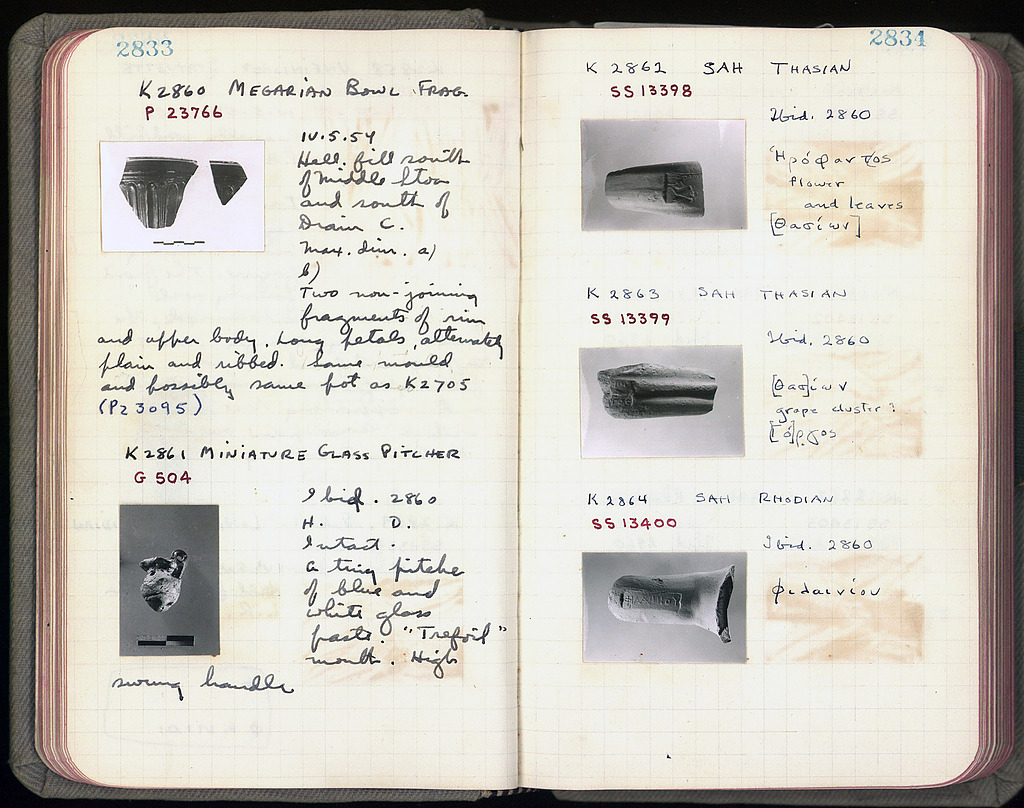 2833
K2860 MEGARIAN BOWL FRAG.
P 23766
IV.5.54
Hell. fill south
of Middle Stoa
and south of
Drain C.
Max. dim. a)
b)
Two non-joining
fragments of rim
and upper body. Long petals, alternately
plain and ribbed. Same mould
and possibly same pot as K2705
(P23095)
K2861 MINIATURE GLASS PITCHER
G 504
Ibid. 2860
H. D.
Intact.
A tiny pitcher
of blue and
white glass
paste. "Trefoil"
mouth. High
swung handle
2834
K 2862 SAH THASIAN
SS 13398
Ibid. 2860
Ἡρόφαντος
flower
and leaves
[Θασίων]
K 2863 SAH THASIAN
SS 13399
Ibid. 2860
[Θασ]ίων
grape cluster?
K 2864 SAH RHODIAN
SS 13400
Ibid. 2860
Φιλαινίου